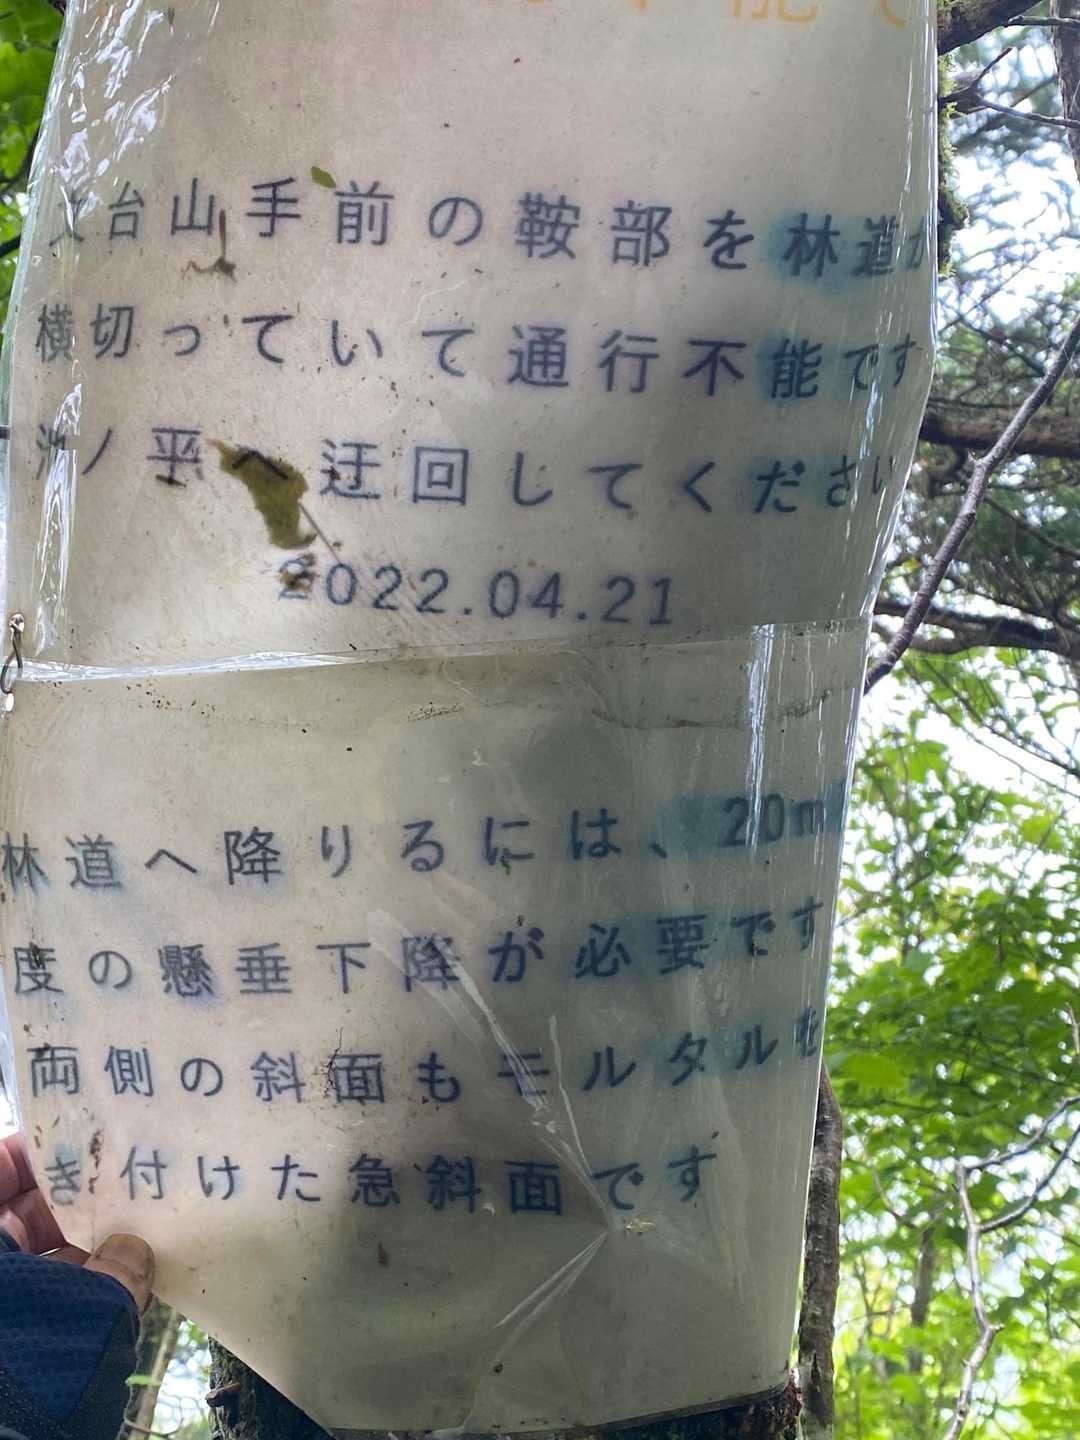 能
文台山手前の鞍部を林道が
横切っていて通行不能です
池ノ平へ迂回してください
2022.04.21
林道へ降りるには、20m
度の懸垂下降が必要です
両側の斜面もモルタルを
き付けた急斜面です